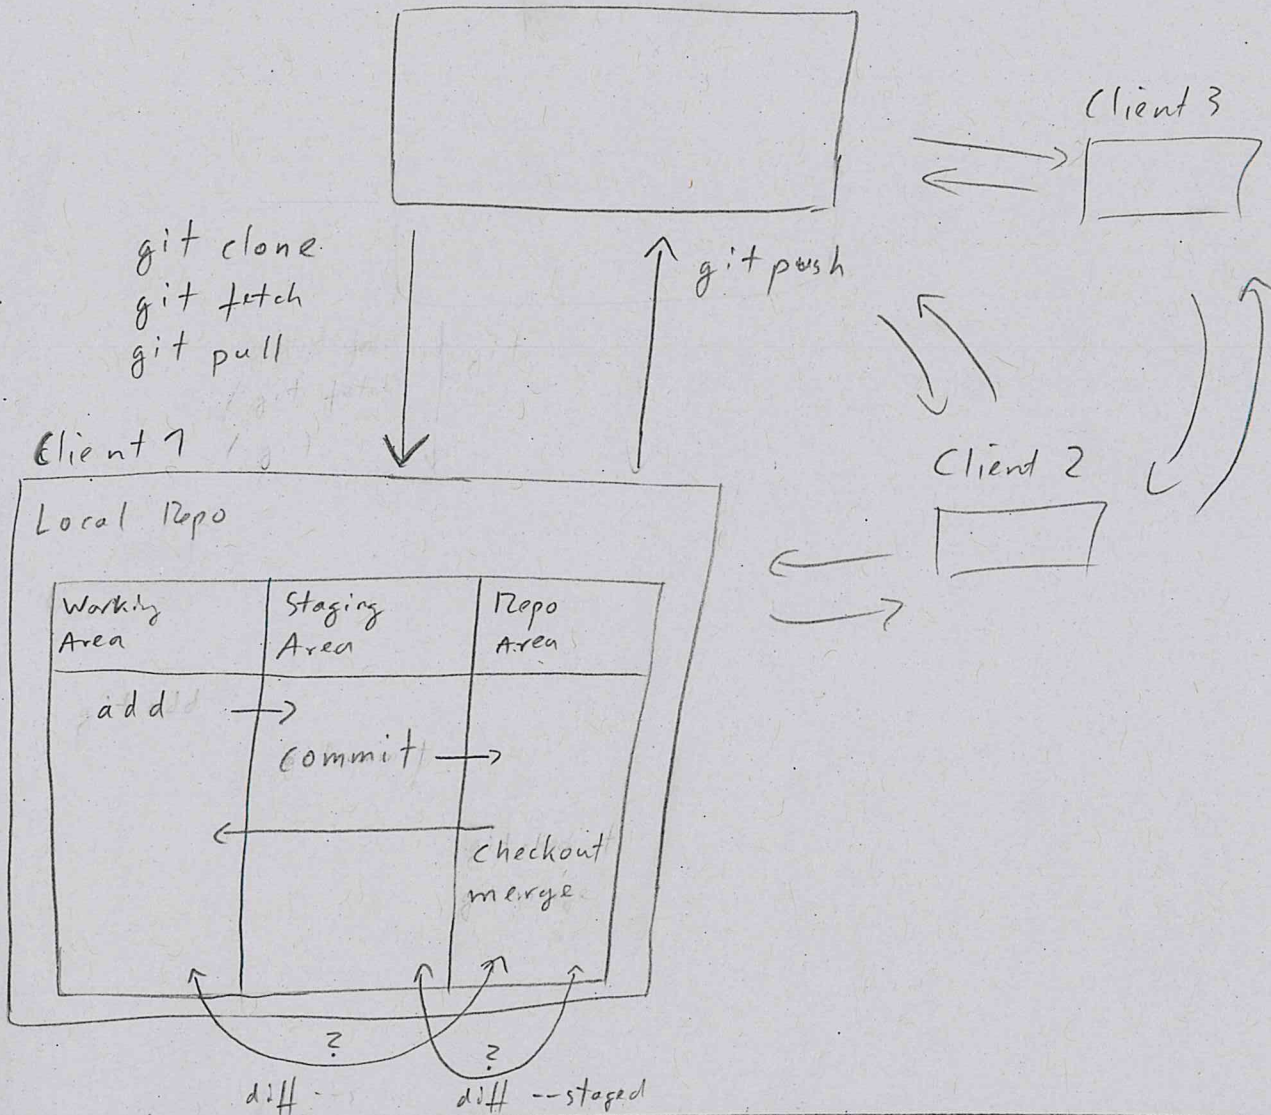 Client 3
git clone
git fetch
git pull
git push
Client 1
Client 2
Local Repo
Working
Area
Staging
Area
Repo
Area
add
commit
checkout
merge
?
?
diff
diff --staged